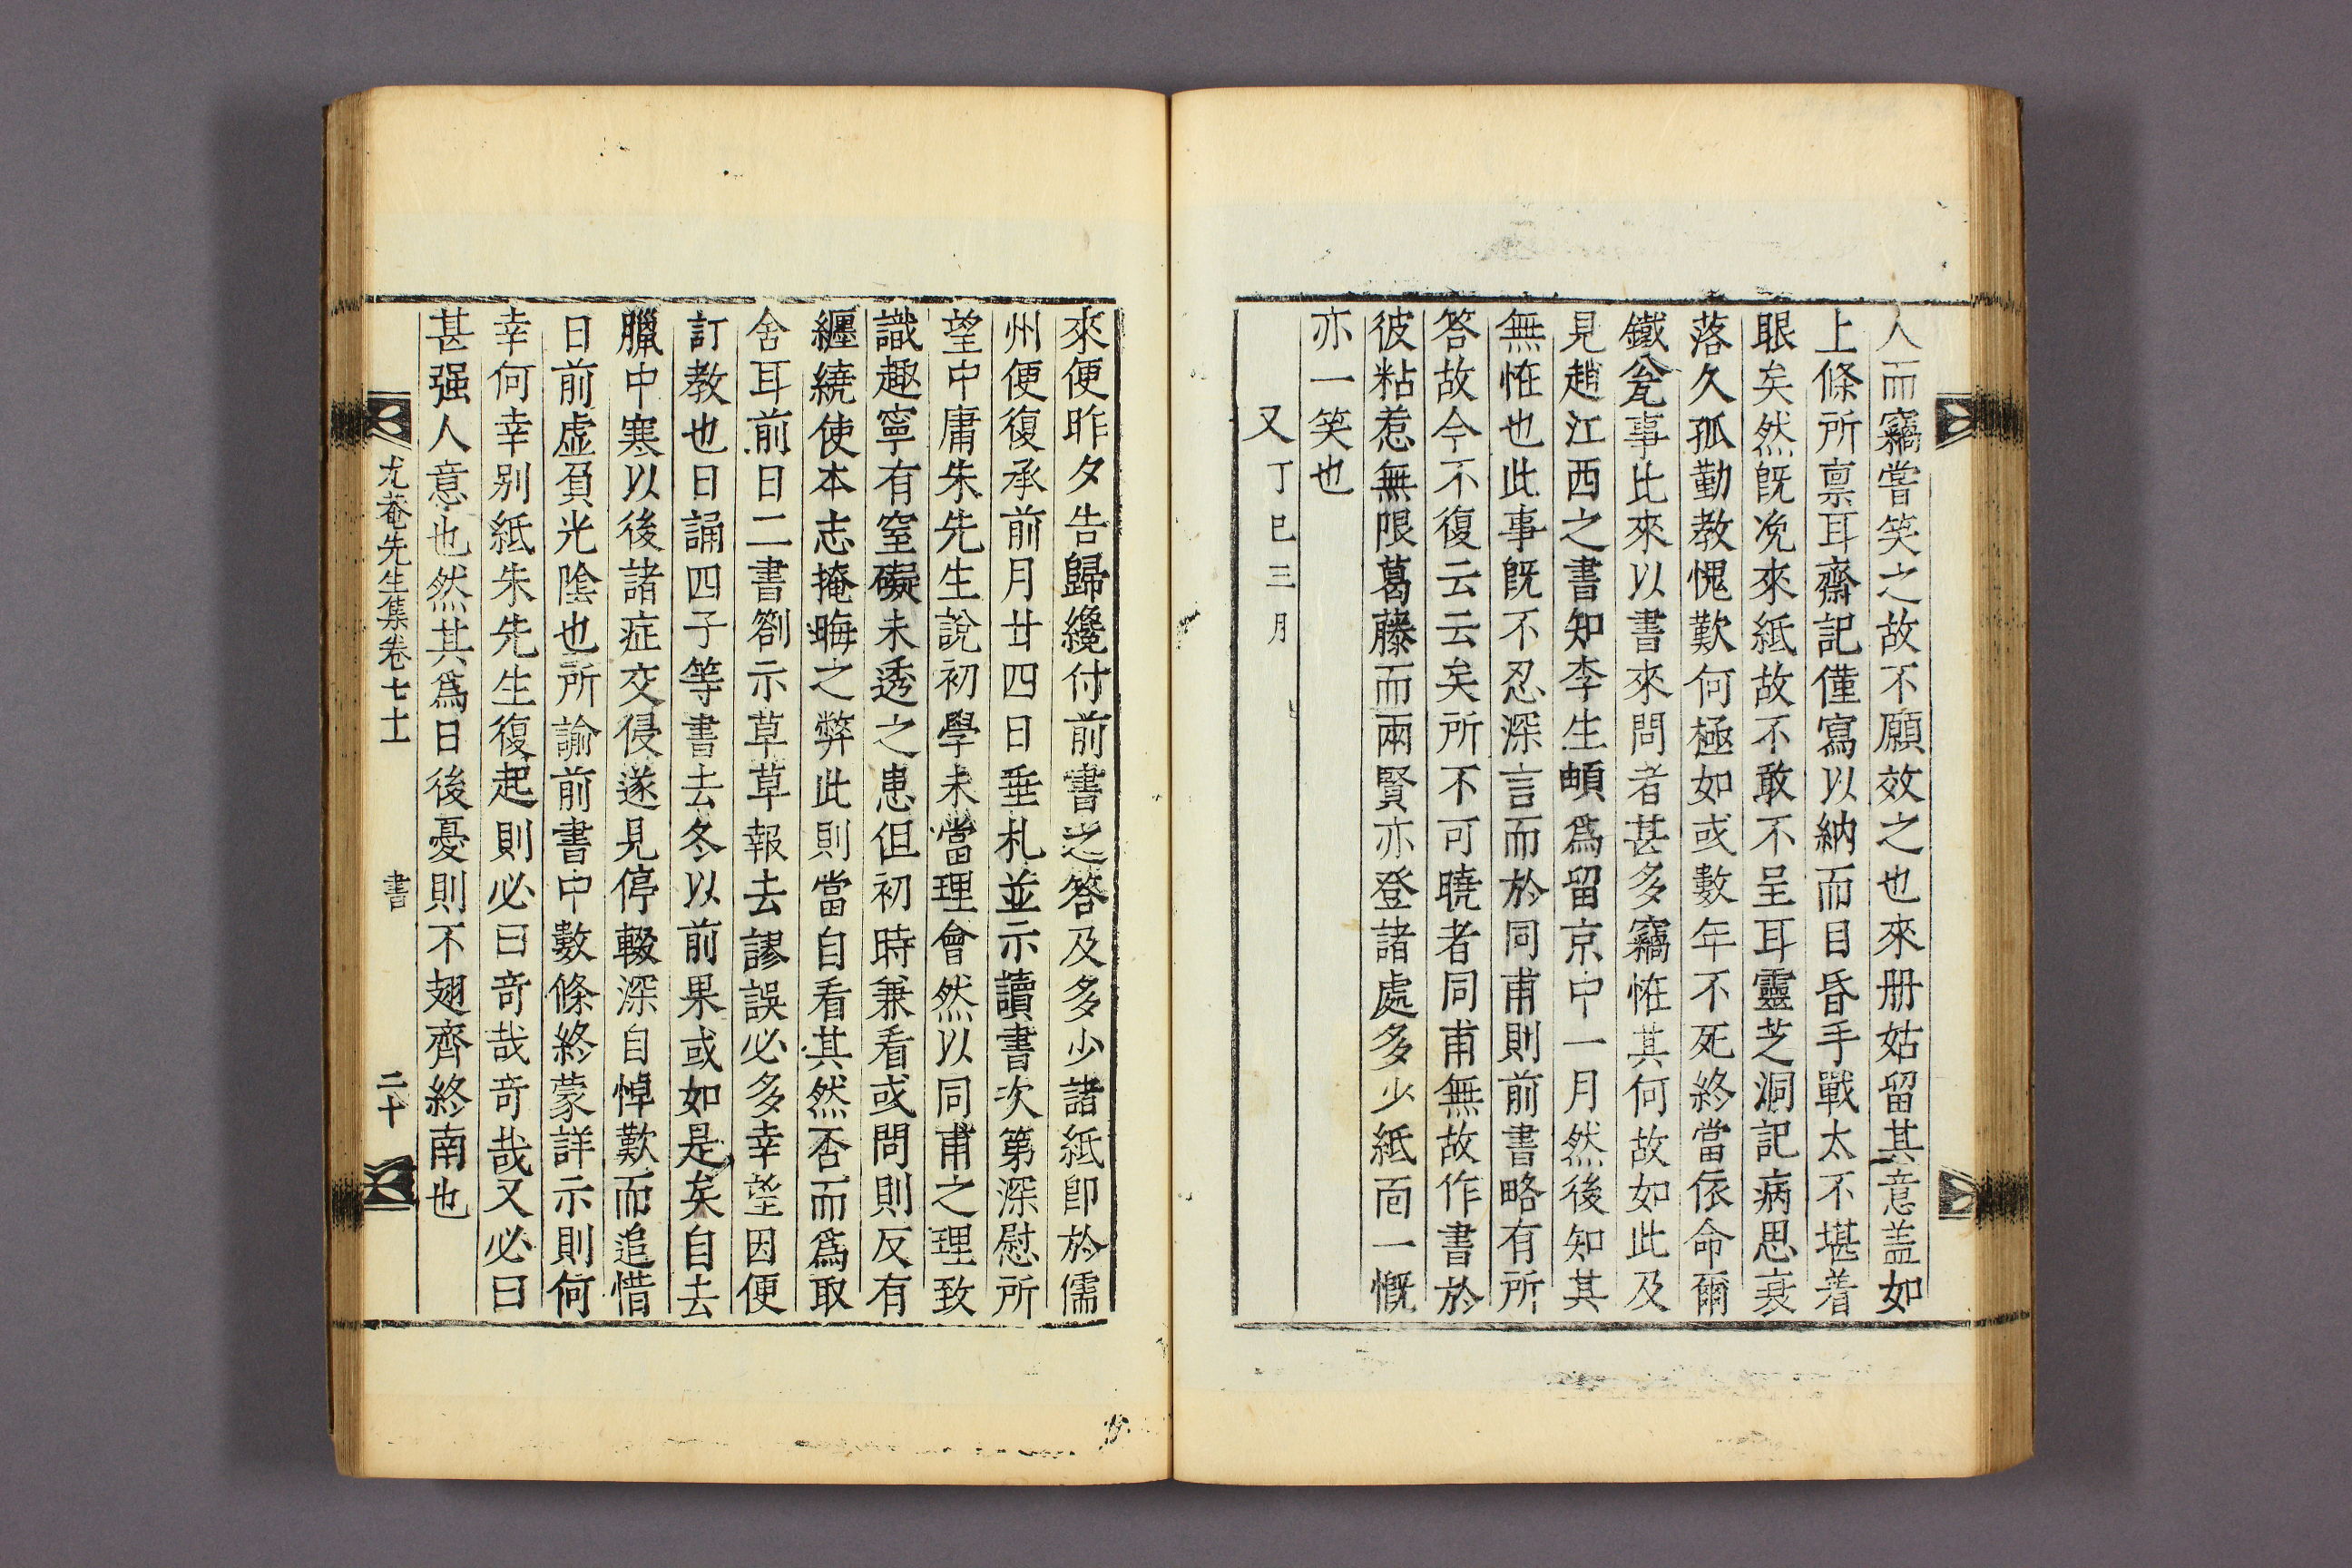 人而竊嘗笑之故不願效之也來册姑留其意盖如
上條所禀耳齋記僅寫以納而目昏手戰太不堪着
眼矣然旣浼來紙故不敢不呈耳靈芝洞記病思衰
落久孤勤教愧歎何極如或數年不死終當依命爾
鐵瓮事比來以書來問者甚多竊恠其何故如此及
見趙江西之書知李生䪻爲留京中一月然後知其
無恠也此事旣不忍深言而於同甫則前書略有所
答故今不復云云矣所不可曉者同甫無故作書於
彼粘惹無限葛藤而兩賢亦登諸處多少紙面一慨
亦一笑也
又丁巳三月
來便昨夕告歸纔付前書之答及多少諸紙卽於儒
州便復承前月廿四日垂札並示讀書次第深慰所
望中庸朱先生說初學未當理會然以同甫之理致
識趣寧有窒礙未透之患但初時兼看或問則反有
纏繞使本志掩晦之弊此則當自看其然否而爲取
舍耳前日二書劄示草草報去謬誤必多幸望因便
訂教也日誦四子等書去冬以前果或如是矣自去
臘中寒以後諸症交侵遂見停輟深自悼歎而追惜
日前虛負光陰也所諭前書中數條終蒙詳示則何
幸何幸別紙朱先生復起則必曰奇哉奇哉又必曰
甚强人意也然其爲日後憂則不翅齊終南也
尤菴先生集卷七十一
書
二十